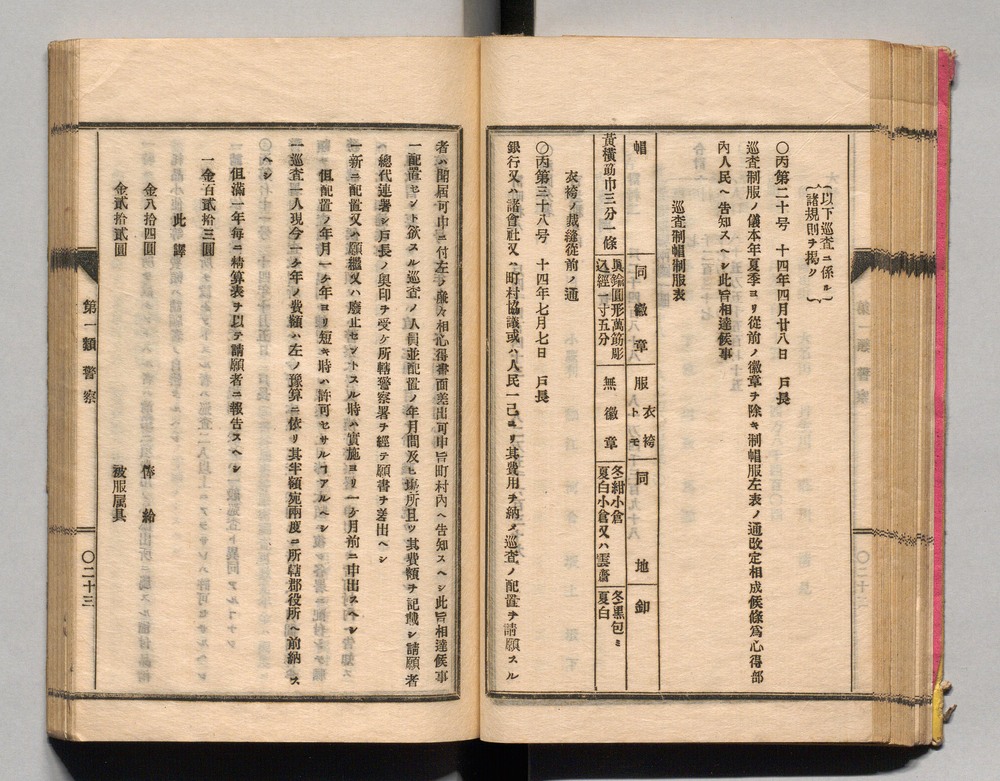 以下巡査ニ係ル
諸規則ヲ掲ク
〇丙第二十号　十四年四月廿八日　戸長
巡査制服ノ儀本年夏季ヨリ従前ノ徽章ヲ除キ制帽服左表ノ通改定相成候條為心得部
内人民ヘ告知スヘシ此旨相達候事
巡査制帽制服表
帽　同徽章　服　衣袴トモ　同地　釦
黄横筋巾三分一條　真鍮圓形萬筋彫　込経一寸五分　無徽章　冬紺小倉　夏白小倉又ハ雲齋　冬黒包ミ　夏白
衣袴ノ裁縫従前ノ通
〇丙第三十八号　十四年七月七日　戸長
銀行又ハ諸會社又ハ町村協議或ハ人民一己ヨリ其費用ヲ納メ巡査ノ配置ヲ請願スル
者ハ聞届可申ニ付左ノ廉々相心得書面差出可申旨町村内ヘ告知スヘシ此旨相達候事
一配置セント欲スル巡査ノ人員並配置ノ年月間及ヒ塲所且ツ其費額ヲ記載シ請願者
總代連署シ戸長ノ奥印ヲ受ケ所轄警察署ヲ經テ願書ヲ差出ヘシ
一新ニ配置又ハ願繼又ハ廢止セントスル時ハ實施ヨリ一ケ月前ニ申出スヘシ
但配置ノ年月一ケ年ヨリ短キ時ハ許可セサルヿアルヘシ
一巡査一人現今一ケ年ノ費額ハ左ノ豫算ニ依リ其半額宛兩度ニ所轄郡役所ヘ前納ス
ヘシ
但滿一年毎ニ精算表ヲ以テ請願者ニ報告スヘシ
一金百貳拾三圓
此譯
金八拾四圓　俸給
金貳拾貳圓　被服属具
第一類　警察　〇二十三